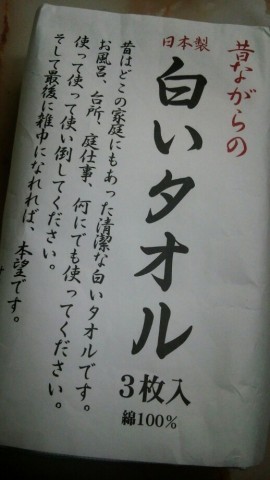 昔ながらの
日本製
白いタオル
3枚入
綿100%
昔はどこの家庭にもあった清潔な白いタオルです。
お風呂、台所、庭仕事、何にでも使ってください。
使って使って使い倒してください。
そして最後に雑巾になれれば、本望です。